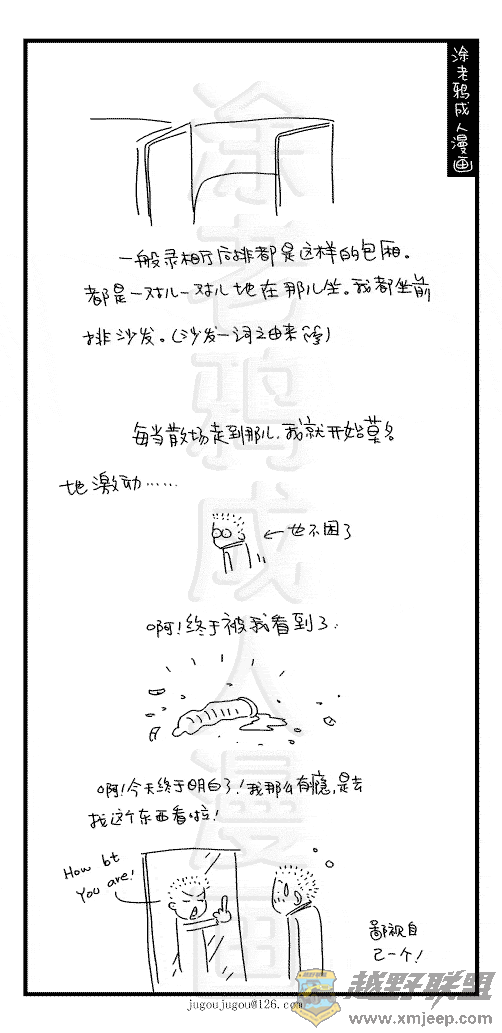 涂老鸦成人漫画
一般录相厅后排都是这样的包厢。
都是一对儿一对儿地在那儿坐。我都坐前
排沙发。(沙发一词之由来
每当散场走到那儿,我就开始莫名
地激动……
←也不困了
啊!终于被我看到了.
啊!今天终于明白了!我那么有瘾,是去
找这个东西看啦!
How bt
You are!
鄙视自
己一个!
jugoujugou@126.com
越野联盟
www.xmjeep.com
涂老鸦成人漫画